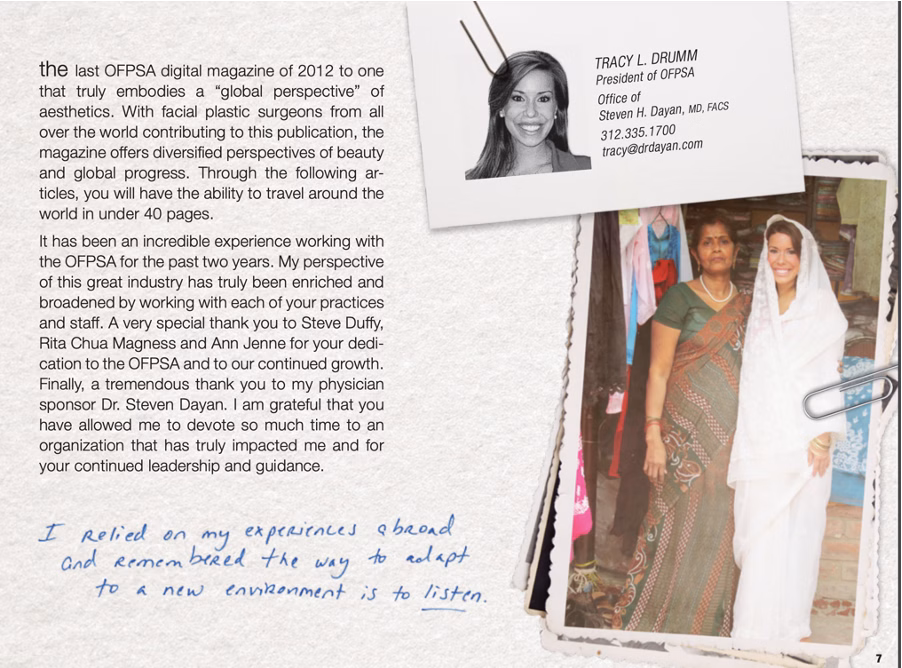 the last OFPSA digital magazine of 2012 to one
that truly embodies a “global perspective” of
aesthetics. With facial plastic surgeons from all
over the world contributing to this publication, the
magazine offers diversified perspectives of beauty
and global progress. Through the following ar-
ticles, you will have the ability to travel around the
world in under 40 pages.
It has been an incredible experience working with
the OFPSA for the past two years. My perspective
of this great industry has truly been enriched and
broadened by working with each of your practices
and staff. A very special thank you to Steve Duffy,
Rita Chua Magness and Ann Jenne for your dedi-
cation to the OFPSA and to our continued growth.
Finally, a tremendous thank you to my physician
sponsor Dr. Steven Dayan. I am grateful that you
have allowed me to devote so much time to an
organization that has truly impacted me and for
your continued leadership and guidance.
I relied on my experiences abroad
and remembered the way to adapt
to a new environment is to listen.
TRACY L. DRUMM
President of OFPSA
Office of
Steven H. Dayan, MD, FACS
312.335.1700
tracy@drdayan.com
7